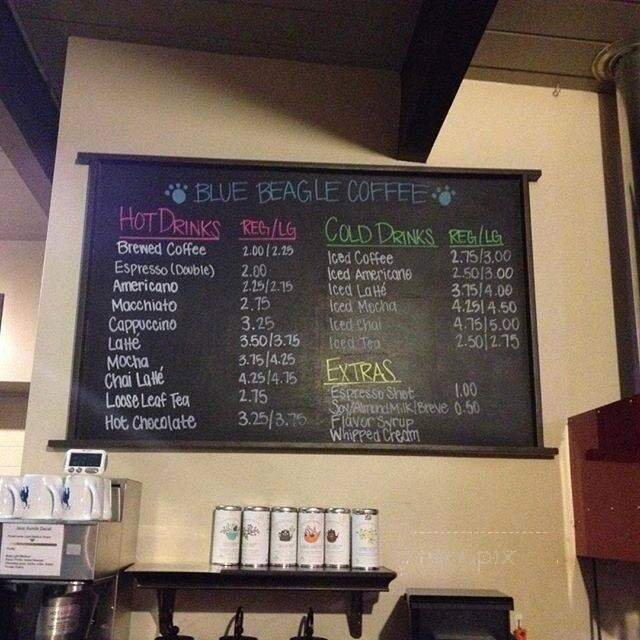 BLUE BEAGLE COFFEE
HOT DRINKS REG/LG
Brewed Coffee 2.00/2.25
Espresso (Double) 2.00
Americano 2.25/2.75
Macchiato 2.75
Cappuccino 3.25
Latté 3.50/3.75
Mocha 3.75/4.25
Chai Latté 4.25/4.75
Loose Leaf Tea 2.75
Hot Chocolate 3.25/3.75
COLD DRINKS REG/LG
Iced Coffee 2.75/3.00
Iced Americano 2.50/3.00
Iced Latté 3.75/4.00
Iced Mocha 4.25/4.50
Iced Chai 4.75/5.00
Iced Tea 2.50/2.75
EXTRAS
Espresso Shot 1.00
Soy/Almond Milk/Breve 0.50
Flavor Syrup
Whipped Cream